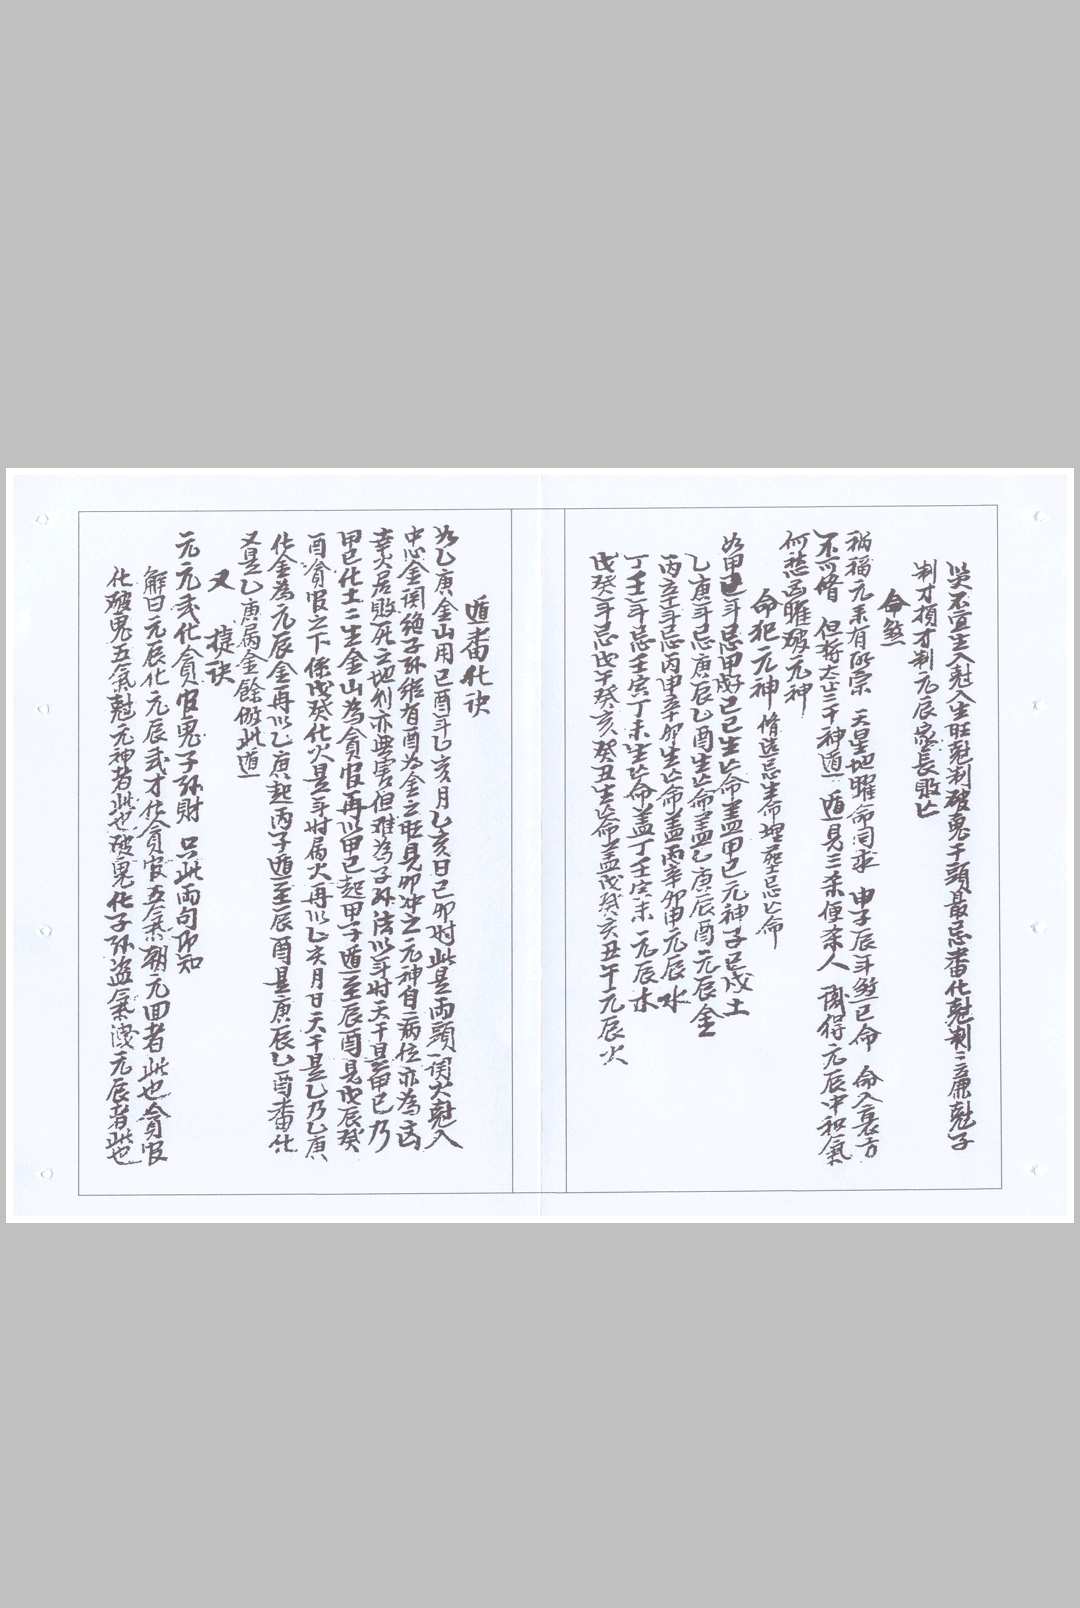 災不宜生入尅入生旺尅制破鬼干頭最忌畨化尅制三廉尅子
制才損才制元辰家長敗亡
命煞
禍福元來有所宗 天星地曜命同求 申子辰斗煞巳命 命入裏方
不可修 但將太歲三干神遁 遁見三杀便杀人 識得元辰冲和氣
何愁凶曜破元神
命犯元神 修造忌生命埋葬忌亡命
如甲己斗忌甲戌己巳生亡命盖甲己元神子巳戌土
乙庚斗忌庚辰乙酉生亡命盖乙庚辰酉元辰金
丙辛斗忌丙申辛卯生亡命盖丙辛卯申元辰水
丁壬斗忌壬寅丁未生亡命盖丁壬寅未元辰木
戊癸斗忌戊午癸亥癸丑生亡命盖戊癸亥丑午元辰火
遁畨化訣
如乙庚金山用己酉斗乙亥月乙亥日己卯时此是兩頭一関火尅入
中心金関絶子孙縂有酉为金之旺見卯冲之元神自病位亦為凶
幸火居敗死之地利亦無害但难為子孙法以斗时天干是甲己乃
甲己化土二生金山為貪官再以甲己起甲子遁至辰酉見戊辰癸
酉貪官之下係戊癸化火是斗时属火再以乙亥月日天干是乙乃乙庚
化金為元辰金再以乙庚起丙子遁至辰酉是庚辰乙酉畨化
又是乙庚病金餘倣此遁
又 捷訣
元元武化貪官鬼子孙財 只此兩句即知
解曰元辰化元辰武才化貪官五氣朝元回者此也貪官
化破鬼五氣尅元神者此也破鬼化子孙盗氣洩元辰者此也